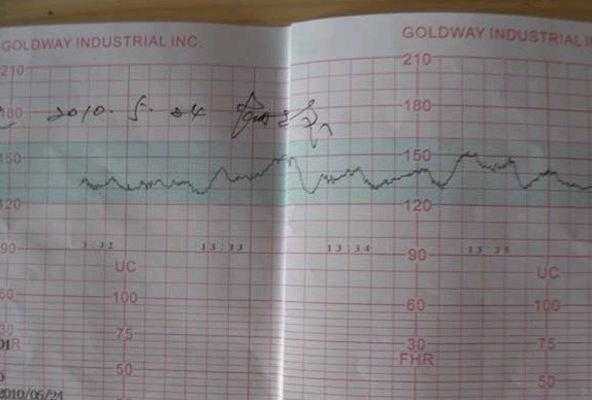 GOLDWAY INDUSTRIAL INC.
GOLDWAY INDUSTRIAL
210
210
180
180
2010. 5. 24
150
150
120
120
90
13:33
13:34
90
13:35
UC
UC
60
100
60
100
30
75
30
75
FHR
50
50
2010/05/24